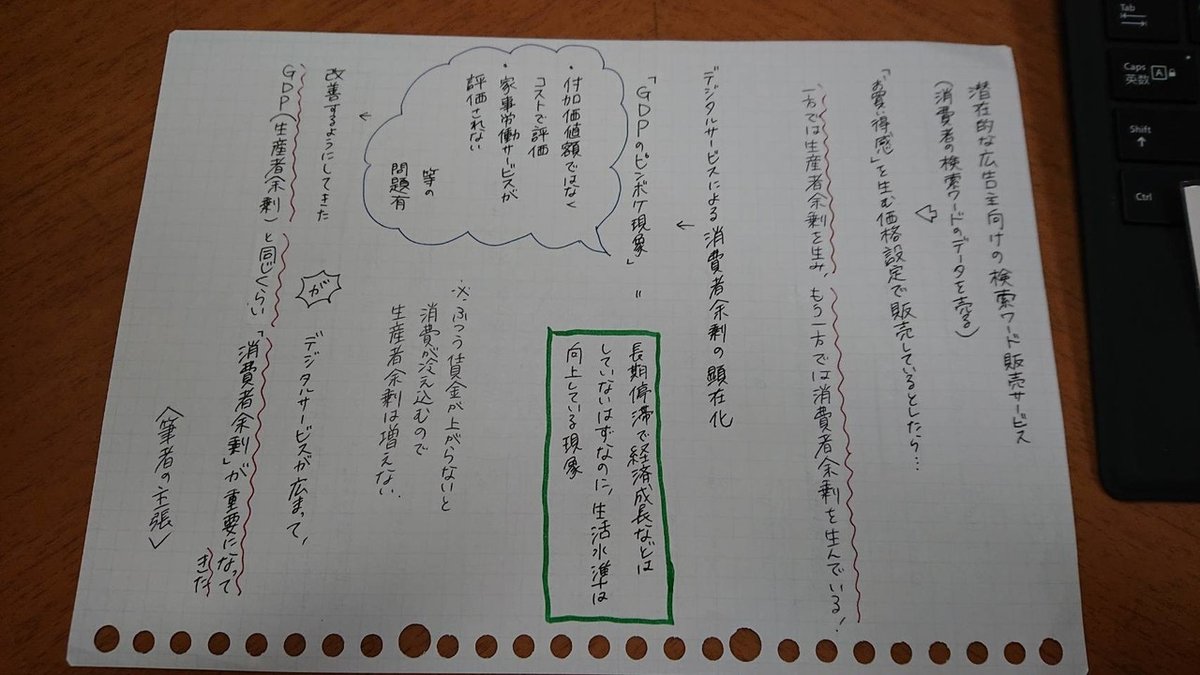 潜在的な広告主向けの検索ワード販売サービス
(消費者の検索ワードのデータを売る)
「お買い得感」を生む価格設定で販売しているとしたら…
一方では生産者余剰を生み、もう一方では消費者余剰を生んでいる!
デジタルサービスによる消費者余剰の顕在化
「GDPのピンボケ現象」=
長期停滞で経済成長などは
していないはずなのに、生活水準は
向上している現象
・付加価値額ではなく
コストで評価
・家事労働サービスが
評価されない
等の
問題有
※ふつう賃金が上がらないと
消費が冷え込むので
生産者余剰は増えない。
改善するようにしてきた
が
デジタルサービスが広まって、
GDP(生産者余剰)と同じくらい「消費者余剰」が重要になって
きた
〈筆者の主張〉
Tab
Caps
英数
A
Shift
Ctrl